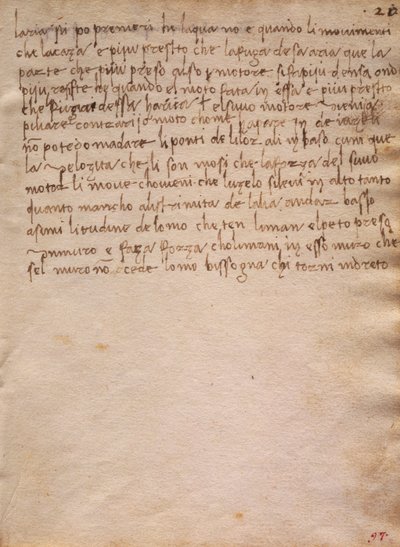 21
laria sii po premeri he laqua no e quando li movimenti
che lacaza e piju preslto che lafuga de sa aria que la
parte che piju preso also motore si fa piju densa ond
piju resiste de quando el moto fata in essa e piu prestto
che dessa el suvo motore veni a
piliare contrari so moto chome apare in de
no potedo madare li ponti de li loz ali in baso cum que
la velozita che li son mosi che la forza del suvo
motor li move choveni che luzelo si levi in alto tanto
quanto mancho ali strimita de lalia andaz basso
asimi litudine de lomo che ten liman el peto preso
unmuro e faza forza cholimani in esso muro che
sel muro no cede lomo bissogna chi torni indreto
97.